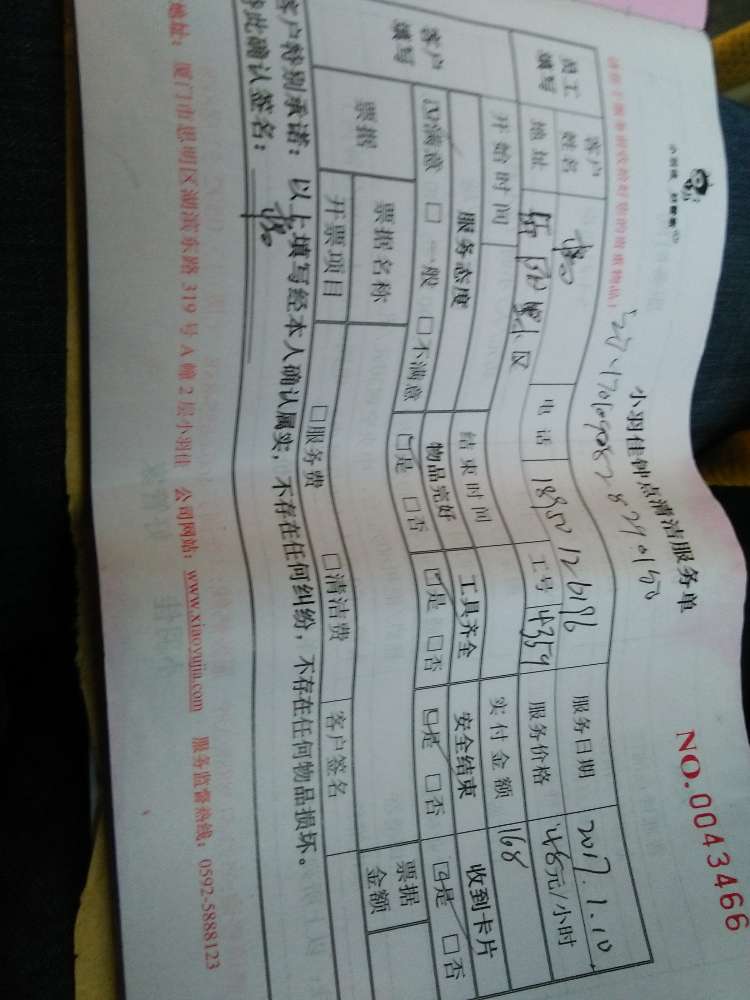 小羽佳钟点清洁服务单
NO.0043466
客户姓名 电话 服务日期 2017.1.10
员工填写 地址 小区 工号 14359 服务价格 48元/小时
开始时间 结束时间 实付金额 168
客户填写 服务态度 物品完好 工具齐全 安全结束 收到卡片
☑满意 □一般 □不满意 ☑是 □否 ☑是 □否 ☑是 □否 ☑是 □否
票据 票据名称 票据金额
开票项目 □服务费 □清洁费 客户签名
客户特别承诺：以上填写经本人确认属实，不存在任何纠纷，不存在任何物品损坏。
特此确认签名：
地址：厦门市思明区湖滨东路319号A幢2层小羽佳 公司网站：www.xiaoyujia.com 服务监督热线：0592-5888123